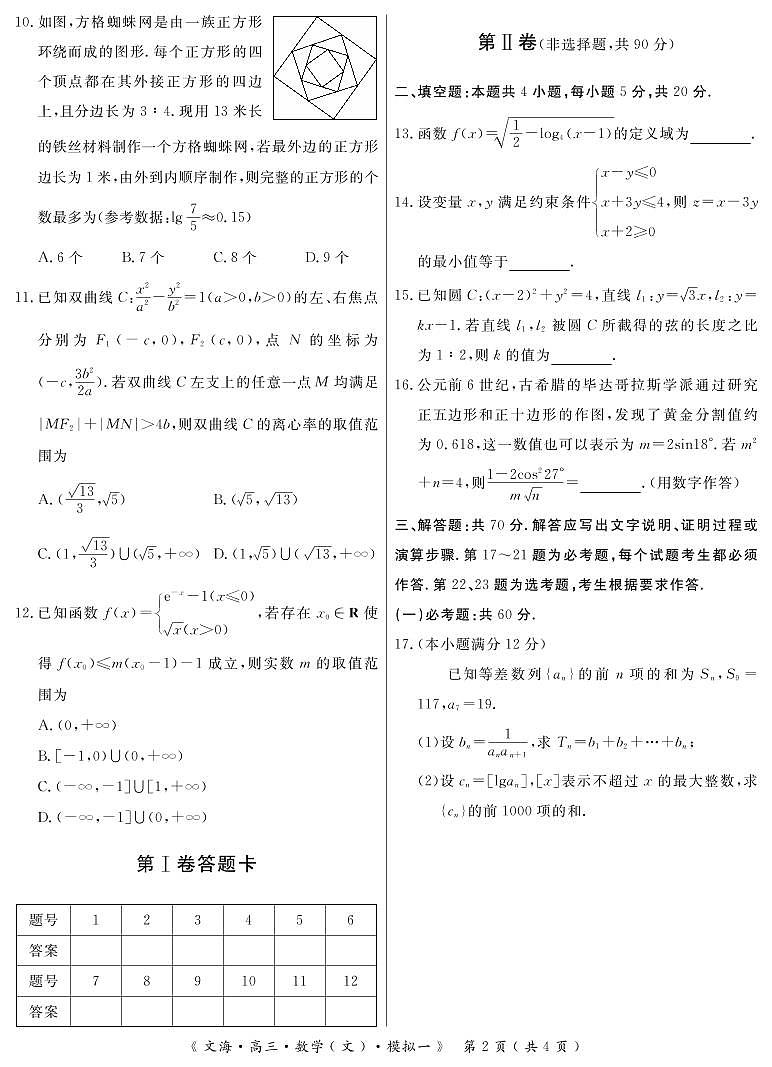 10. 如图,方格蜘蛛网是由一族正方形
环绕而成的图形. 每个正方形的四
个顶点都在其外接正方形的四边
上,且分边长为 3∶4. 现用 13 米长
的铁丝材料制作一个方格蜘蛛网,若最外边的正方形
边长为 1 米,由外到内顺序制作,则完整的正方形的个
数最多为(参考数据:lg 7/5 ≈0.15)
A. 6 个 B. 7 个 C. 8 个 D. 9 个
11. 已知双曲线 C: x²/a² − y²/b² = 1(a>0,b>0)的左、右焦点
分别为 F₁(−c,0),F₂(c,0),点 N 的坐标为
(−c, 3b²/2a). 若双曲线 C 左支上的任意一点 M 均满足
|MF₂|+|MN|>4b,则双曲线 C 的离心率的取值范
围为
A. (√13/3,√5) B. (√5,√13)
C. (1,√13/3)∪(√5,+∞) D. (1,√5)∪(√13,+∞)
12. 已知函数 f(x)={e⁻ˣ−1(x≤0) √x(x>0) ,若存在 x₀∈R 使
得 f(x₀)≤m(x₀−1)−1 成立,则实数 m 的取值范
围为
A. (0,+∞)
B. [−1,0)∪(0,+∞)
C. (−∞,−1]∪[1,+∞)
D. (−∞,−1]∪(0,+∞)
第Ⅰ卷答题卡
题号 1 2 3 4 5 6
答案
题号 7 8 9 10 11 12
答案
第Ⅱ卷(非选择题,共 90 分)
二、填空题:本题共 4 小题,每小题 5 分,共 20 分.
13. 函数 f(x)=√(1/2−log₄(x−1))的定义域为________.
14. 设变量 x,y 满足约束条件{x−y≤0 x+3y≤4 x+2≥0 ,则 z=x−3y
的最小值等于________.
15. 已知圆 C:(x−2)²+y²=4,直线 l₁:y=√3x,l₂:y=
kx−1. 若直线 l₁,l₂ 被圆 C 所截得的弦的长度之比
为 1∶2,则 k 的值为________.
16. 公元前 6 世纪,古希腊的毕达哥拉斯学派通过研究
正五边形和正十边形的作图,发现了黄金分割值约
为 0.618,这一数值也可以表示为 m=2sin18°. 若 m²
+n=4,则 (1−2cos²27°)/(m√n) =________.(用数字作答)
三、解答题:共 70 分. 解答应写出文字说明、证明过程或
演算步骤. 第 17～21 题为必考题,每个试题考生都必须
作答. 第 22、23 题为选考题,考生根据要求作答.
(一)必考题:共 60 分.
17. (本小题满分 12 分)
已知等差数列{aₙ}的前 n 项的和为 Sₙ,S₉=
117,a₇=19.
(1)设 bₙ=1/(aₙaₙ₊₁),求 Tₙ=b₁+b₂+⋯+bₙ;
(2)设 cₙ=[lgaₙ],[x]表示不超过 x 的最大整数,求
{cₙ}的前 1000 项的和.
《 文海·高三·数学(文)·模拟一 》 第 2 页( 共 4 页 )